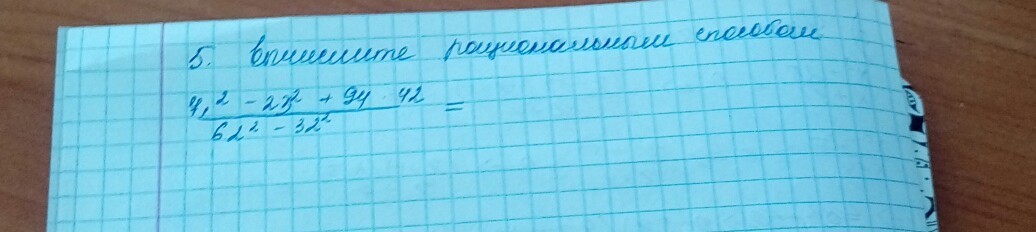 5. вычислите рациональным способом
7,² - 23² + 94 · 42 =
62² - 32²